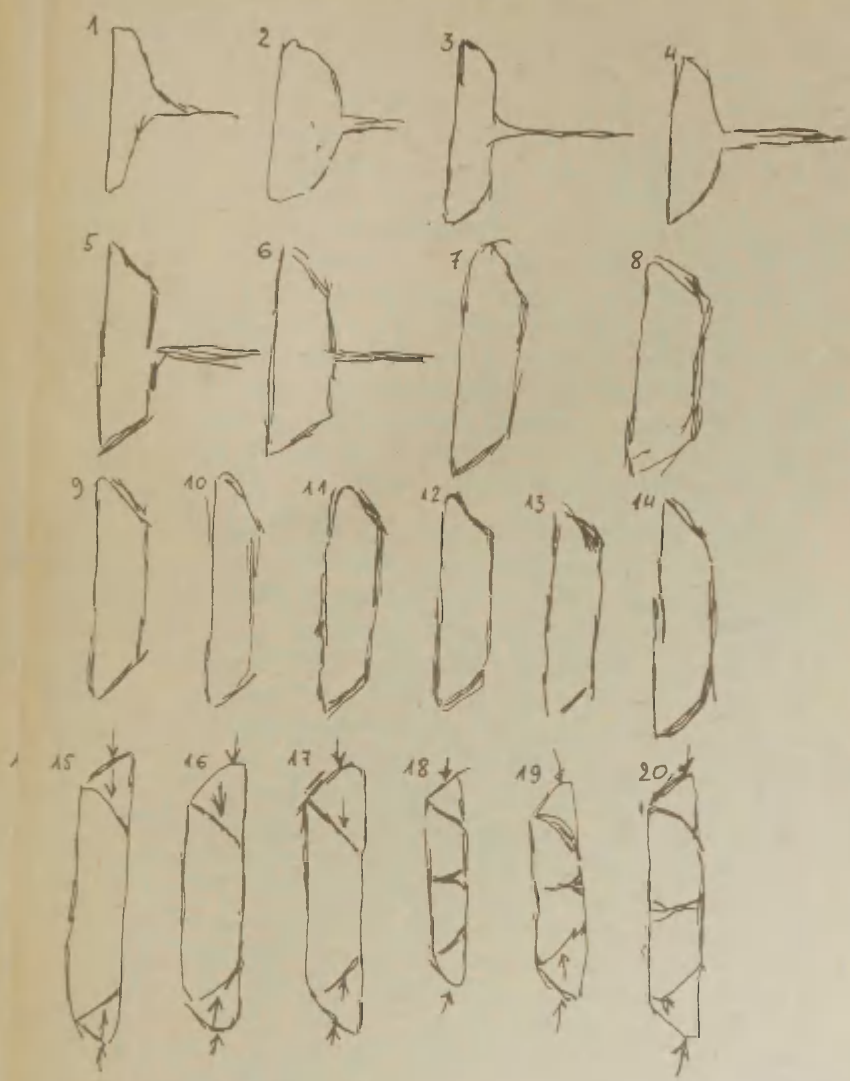 1 2 3 4
5 6 7 8
9 10 11 12 13 14
15 16 17 18 19 20